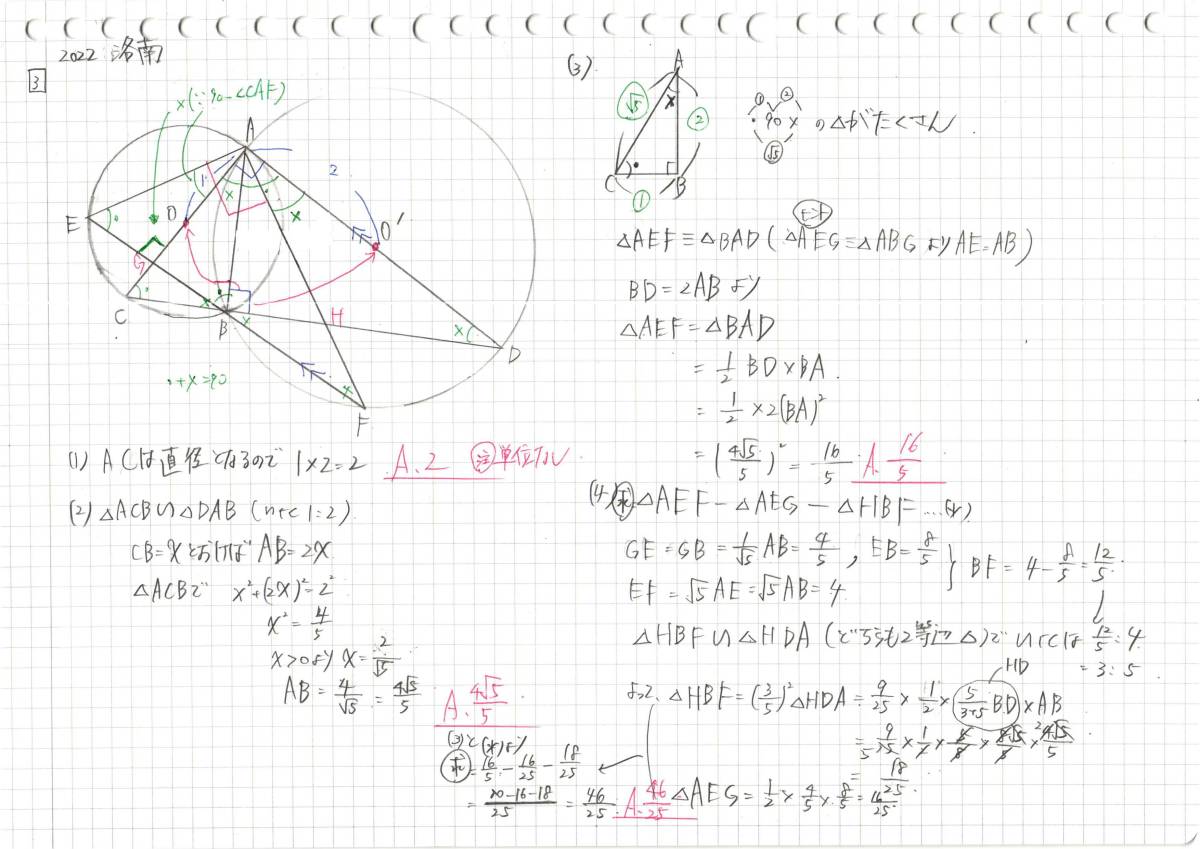 2022 洛南
3
x(∵90-∠CAF)
A
1
2
x
x
E
O
O'
G
C
x
B
x
H
x
D
x
F
・+x=90
(1) ACは直径となるので 1×2=2 A. 2 注 単位なし
(2) △ACB∽△DAB (∽比 1:2)
CB=xとおけば AB=2x
△ACBで x²+(2x)²=2²
x²=4/5
x>0より x=2/√5
AB=4/√5=4√5/5
A. 4√5/5
(3)
A
√5
x
2
C
1
B
1 2
・ 90 x の△がたくさん
√5
△AEF≡△BAD (△AEG≡△ABGよりAE=AB)
BD=2ABより
△AEF=△BAD
=1/2 BD×BA
=1/2×2(BA)²
=(4√5/5)²=16/5 A. 16/5
(4) 求 △AEF-△AEG-△HBF…(*)
GE=GB=1/√5 AB=4/5, EB=8/5
EF=√5AE=√5AB=4
} BF=4-8/5=12/5
△HBF∽△HDA (どちらも2等辺△)で ∽比は 12/5:4
=3:5
HD
よって、△HBF=(3/5)²△HDA=9/25×1/2×5/(3+5)BD×AB
=9/25×1/2×5/8×8√5/5×4√5/5
=18/25
△AEG=1/2×4/5×8/5=16/25
(3)と(*)より
求=16/5-16/25-18/25
=(80-16-18)/25=46/25 A. 46/25